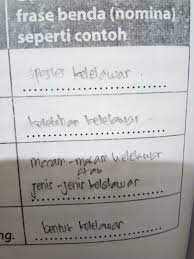 frase benda (nomina)
seperti contoh
spesies kelelawar
kelelawar
macam-macam kelelawar
atau
jenis-jenis kelelawar
bentuk kelelawar
ng.